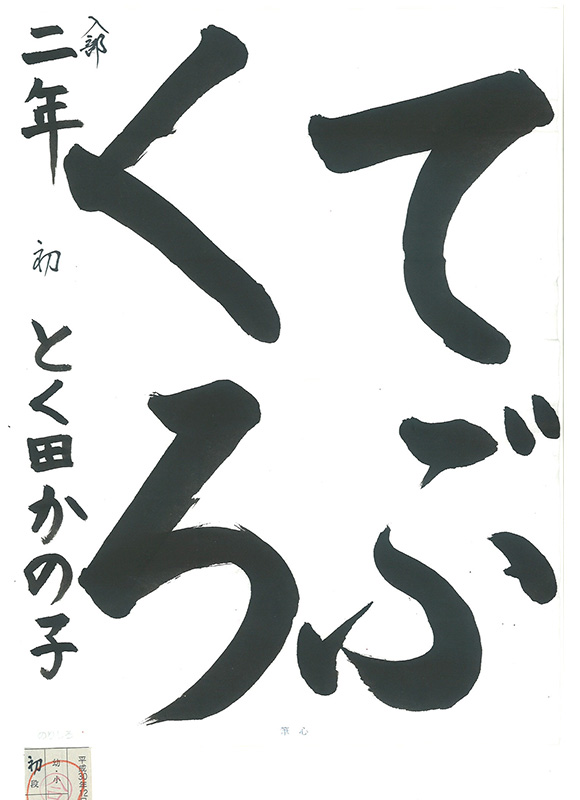 てぶ
くろ
入部
二年 初 とく田かの子
筆心
のりしろ
平成30年12
幼・小
初段